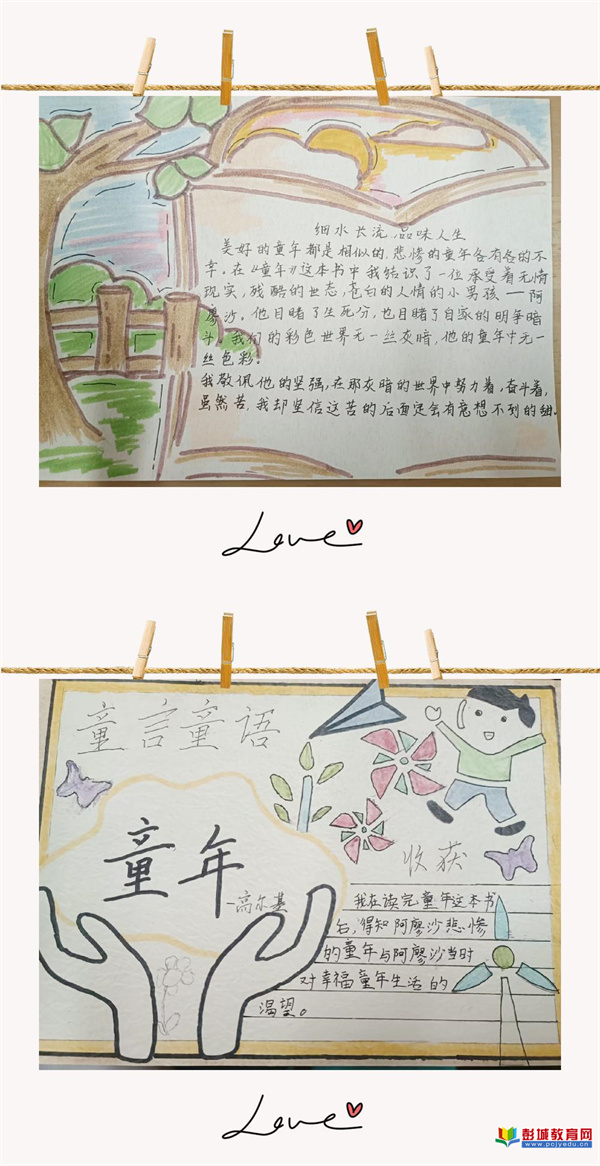 细水长流,品味人生
美好的童年都是相似的,悲惨的童年各有各的不
幸。在《童年》这本书中我结识了一位承受着无情
现实,残酷的世态,苍白的人情的小男孩——阿
廖沙。他目睹了生死分,也目睹了自家的明争暗
斗。我们的彩色世界无一丝灰暗,他的童年中无一
丝色彩。
我敬佩他的坚强,在那灰暗的世界中努力着,奋斗着,
虽然苦,我却坚信这苦的后面定会有意想不到的甜。
Love
童言童语
童年
-高尔基
收获
我在读完童年这本书
后,得知阿廖沙悲惨
的童年与阿廖沙当时
对幸福童年生活的
渴望。
Love
彭城教育网
www.pcjyedu.cn